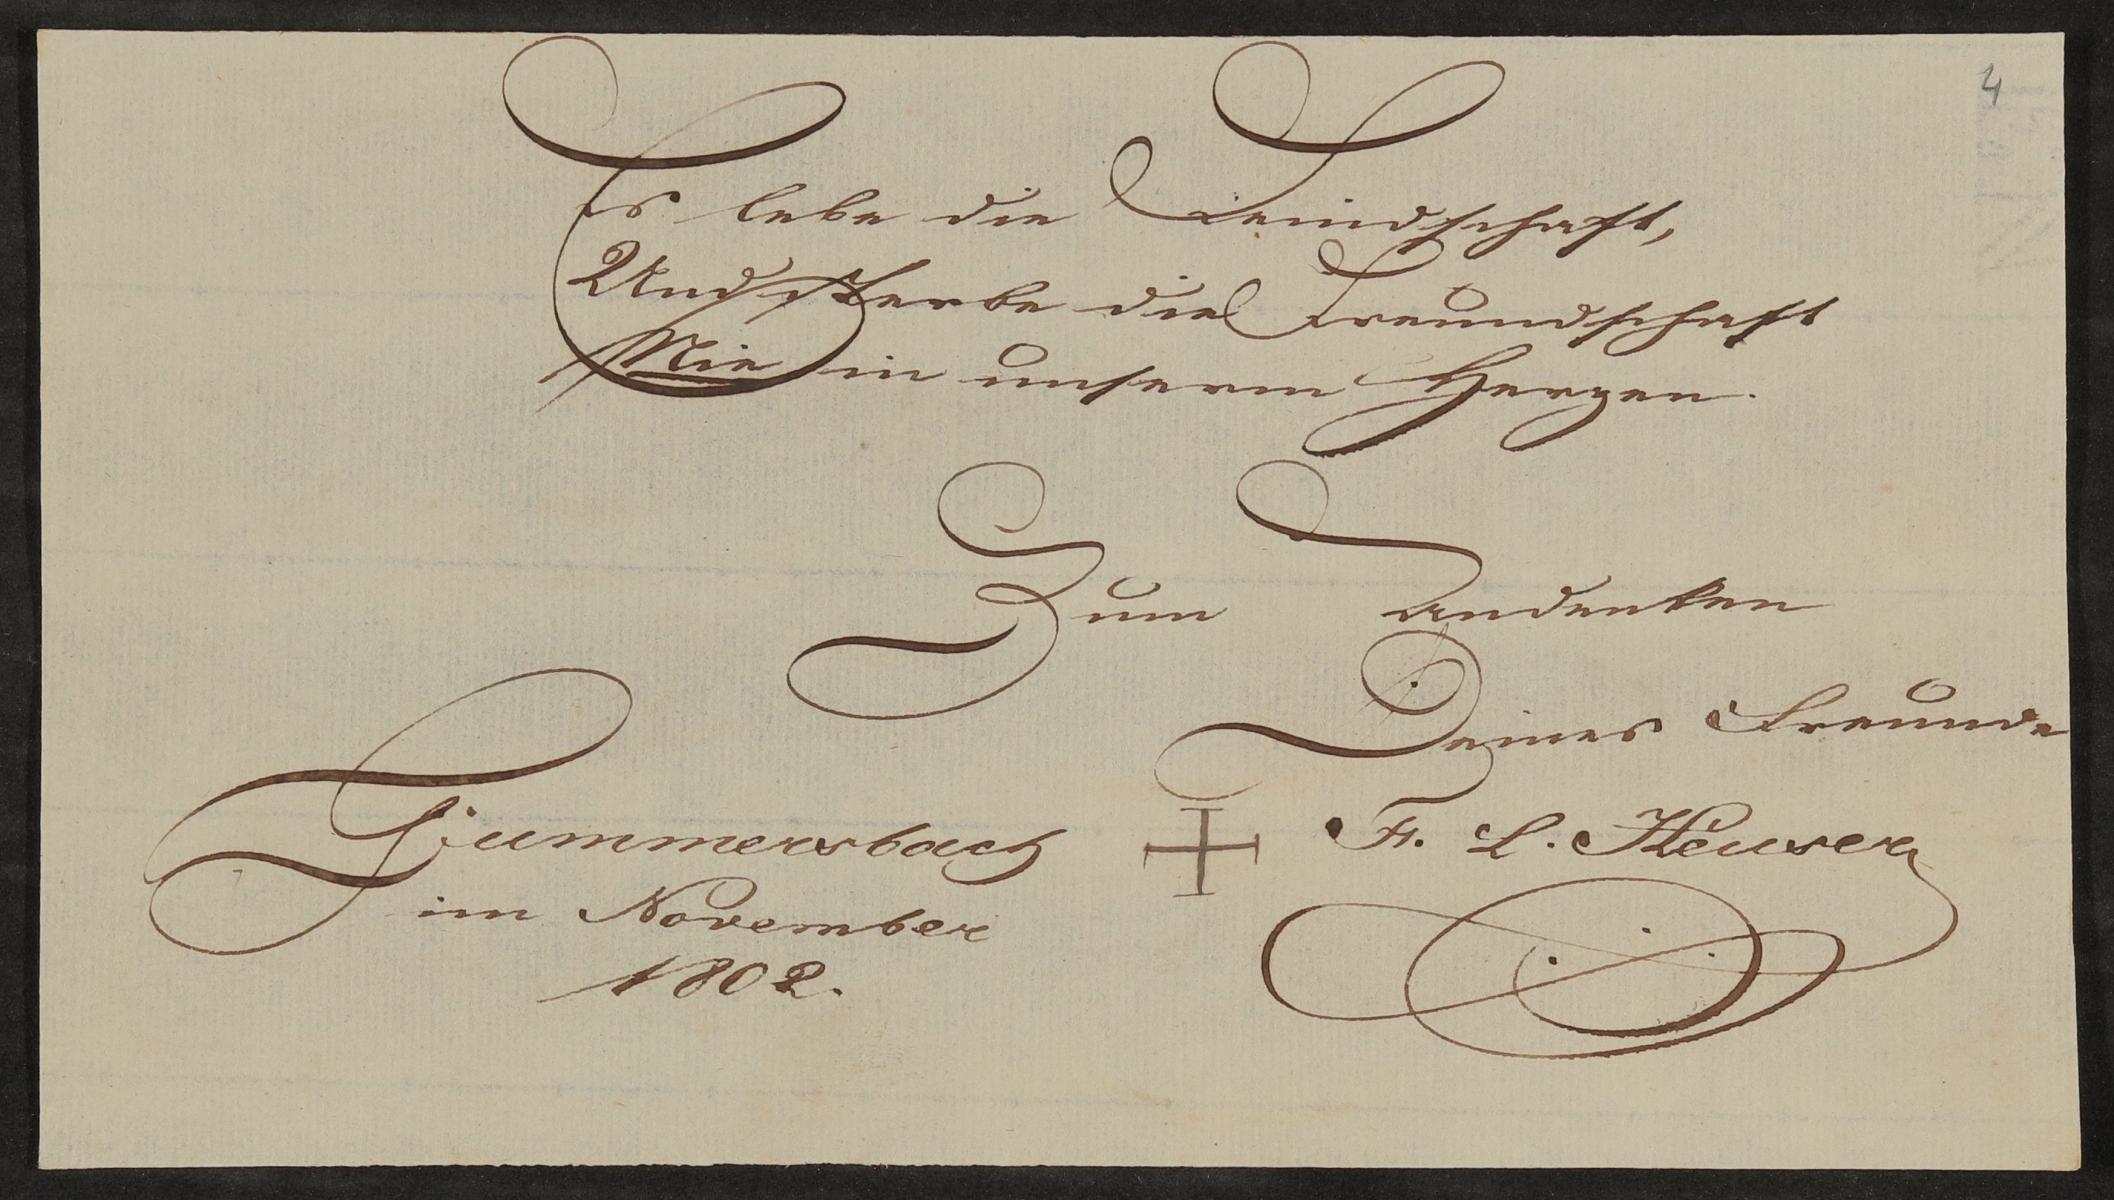 4
Es lebe die Feindschaft,
Und sterbe die Freundschaft
Nie in unserm Herzen.
Zum Andenken
Deines Freunde
F. L. Heuser
Gummersbach
im November
1802.